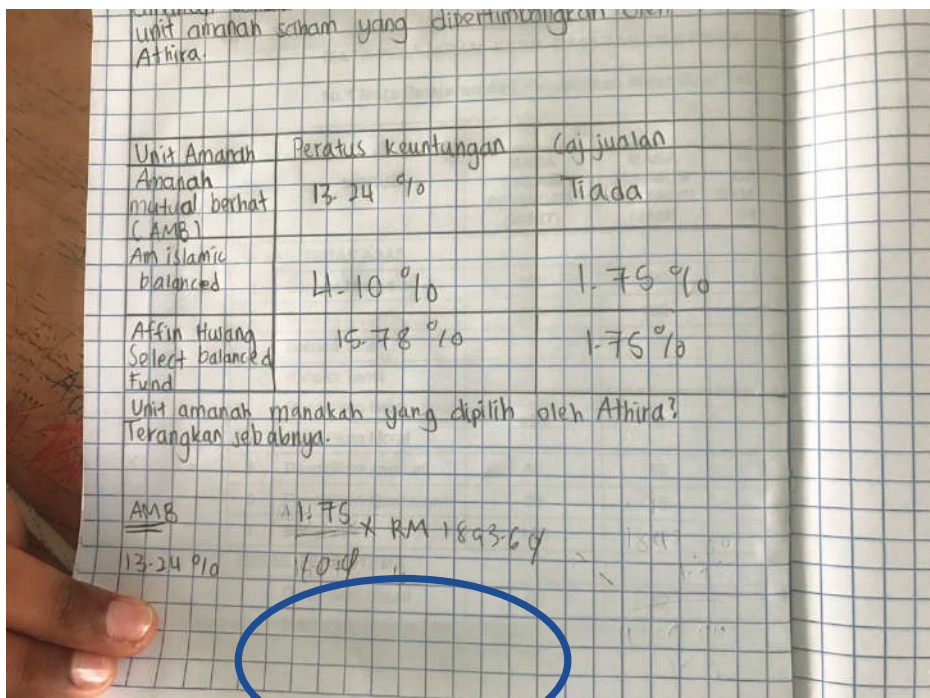 unit amanah saham yang dipertimbangkan oleh
Athira.
Unit Amanah Peratus keuntungan Caj jualan
Amanah
mutual berhat 13.24 % Tiada
(AMB)
Am islamic
balanced 4.10 % 1.75 %
Affin Hwang 15.78 % 1.75 %
Select balanced
Fund
Unit amanah manakah yang dipilih oleh Athira?
Terangkan sebabnya.
AMB 1.75 x RM 1893.64
13.24 %